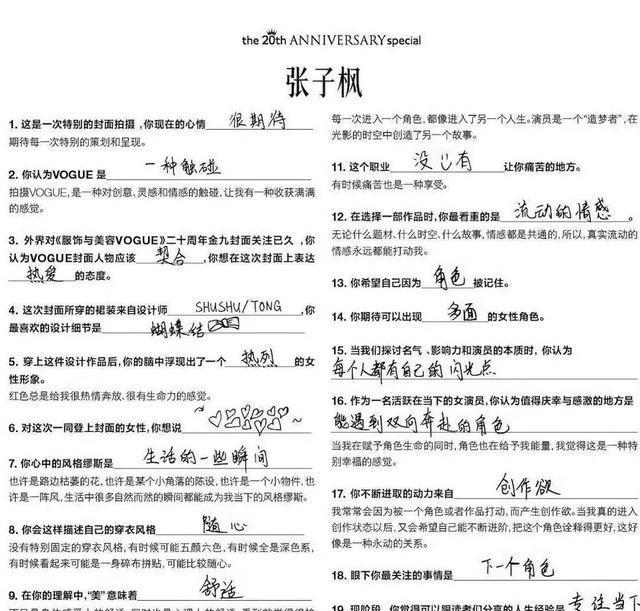 the 20th ANNIVERSARY special
张子枫
1. 这是一次特别的封面拍摄,你现在的心情 很期待
期待每一次特别的策划和呈现。
2. 你认为VOGUE 是 一种触碰
拍摄VOGUE,是一种对创意、灵感和情感的触碰,让我有一种收获满满
的感觉。
3. 外界对《服饰与美容VOGUE》二十周年金九封面关注已久,你
认为VOGUE封面人物应该 契合 ,你想在这次封面上表达
热爱 的态度。
4. 这次封面所穿的裙装来自设计师 SHUSHU/TONG ,你
最喜欢的设计细节是 蝴蝶结
5. 穿上这件设计作品后,你的脑中浮现出了一个 热烈 的女
性形象。
红色总是给我很热情奔放、很有生命力的感觉。
6. 对这次一同登上封面的女性,你想说
7. 你心中的风格缪斯是 生活的一些瞬间
也许是路边枯萎的花,也许是某个小角落的陈设,也许是一个小物件,也
许是一阵风,生活中很多自然而然的瞬间都能成为我当下的风格缪斯。
8. 你会这样描述自己的穿衣风格 随心
没有特别固定的穿衣风格,有时候可能五颜六色,有时候全是深色系,
有时候看起来可能是一身碎布拼贴,可能比较随心。
9. 在你的理解中,“美”意味着 舒适
每一次进入一个角色,都像进入了另一个人生。演员是一个“造梦者”,在
光影的时空中创造了另一个故事。
11. 这个职业 没有 让你痛苦的地方。
有时候痛苦也是一种享受。
12. 在选择一部作品时,你最看重的是 流动的情感 。
无论什么题材、什么时空、什么故事,情感都是共通的,所以,真实流动的
情感永远都能打动我。
13. 你希望自己因为 角色 被记住。
14. 你期待可以出现 多面 的女性角色。
15. 当我们探讨名气、影响力和演员的本质时,你认为
每个人都有自己的闪光点
16. 作为一名活跃在当下的女演员,你认为值得庆幸与感激的地方是
能遇到双向奔赴的角色
当我在赋予角色生命的同时,角色也在给予我能量,我觉得这是一种特
别幸福的感觉。
17. 你不断进取的动力来自 创作欲
我常常会因为被一个角色或者作品打动,而产生创作欲。当我真的进入
创作状态以后,又会希望自己能不断进阶,把这个角色诠释得更好,这好
像是一种永动的关系。
18. 眼下你最关注的事情是 下一个角色
19. 现阶段,你觉得可以跟读者们分享的人生经验是 专注当下